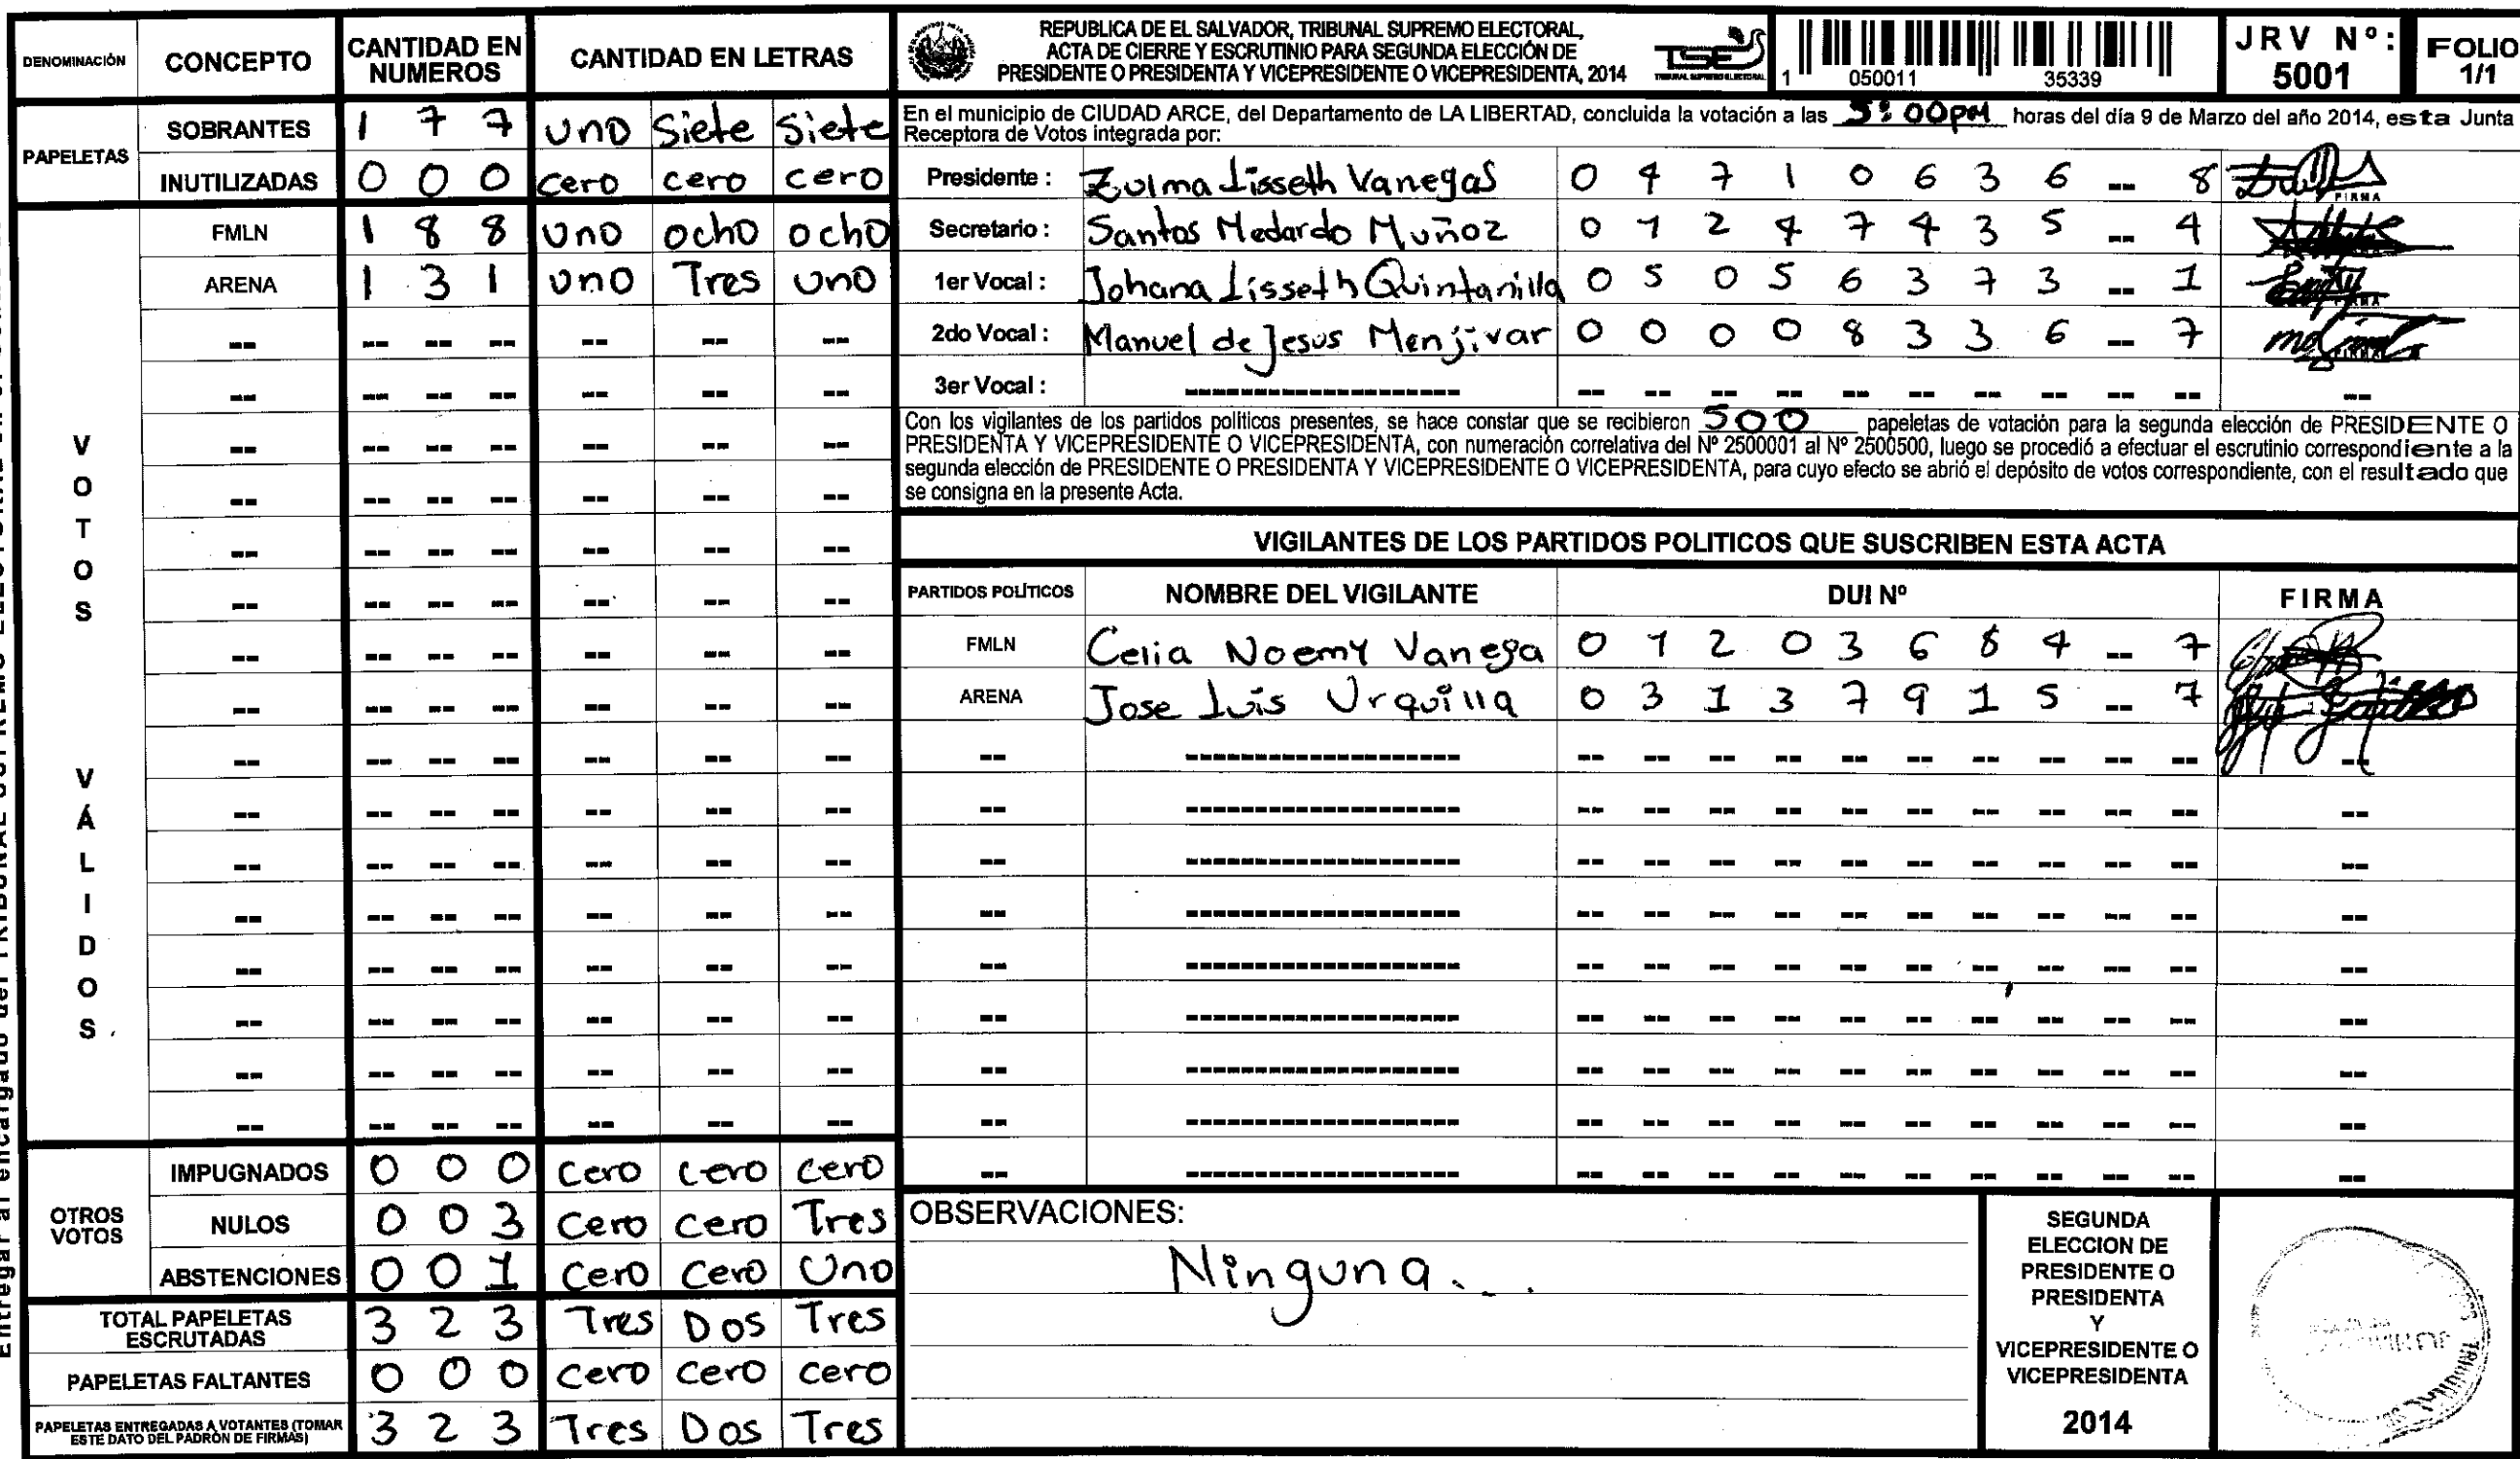 DENOMINACIÓN CONCEPTO CANTIDAD EN NUMEROS CANTIDAD EN LETRAS
PAPELETAS
SOBRANTES 1 7 7 uno Siete Siete
INUTILIZADAS 0 0 0 cero cero cero
VOTOS VÁLIDOS
FMLN 1 8 8 uno ocho ocho
ARENA 1 3 1 uno Tres uno
OTROS VOTOS
IMPUGNADOS 0 0 0 Cero Cero Cero
NULOS 0 0 3 Cero Cero Tres
ABSTENCIONES 0 0 1 Cero Cero Uno
TOTAL PAPELETAS ESCRUTADAS 3 2 3 Tres Dos Tres
PAPELETAS FALTANTES 0 0 0 Cero Cero Cero
PAPELETAS ENTREGADAS A VOTANTES (TOMAR ESTE DATO DEL PADRÓN DE FIRMAS) 3 2 3 Tres Dos Tres
REPUBLICA DE EL SALVADOR, TRIBUNAL SUPREMO ELECTORAL,
ACTA DE CIERRE Y ESCRUTINIO PARA SEGUNDA ELECCIÓN DE
PRESIDENTE O PRESIDENTA Y VICEPRESIDENTE O VICEPRESIDENTA, 2014
TSE
TRIBUNAL SUPREMO ELECTORAL
1 050011 35339
JRV Nº: 5001
FOLIO 1/1
En el municipio de CIUDAD ARCE, del Departamento de LA LIBERTAD, concluida la votación a las 5:00PM horas del día 9 de Marzo del año 2014, esta Junta
Receptora de Votos integrada por:
Presidente : Zulma Lisseth Vanegas 0 4 7 1 0 6 3 6 -- 8
Secretario : Santos Medardo Muñoz 0 1 2 4 7 4 3 5 -- 4
1er Vocal : Johana Lisseth Quintanilla 0 5 0 5 6 3 7 3 -- 1
2do Vocal : Manuel de Jesus Menjivar 0 0 0 0 8 3 3 6 -- 7
3er Vocal :
Con los vigilantes de los partidos políticos presentes, se hace constar que se recibieron 500 papeletas de votación para la segunda elección de PRESIDENTE O
PRESIDENTA Y VICEPRESIDENTE O VICEPRESIDENTA, con numeración correlativa del Nº 2500001 al Nº 2500500, luego se procedió a efectuar el escrutinio correspondiente a la
segunda elección de PRESIDENTE O PRESIDENTA Y VICEPRESIDENTE O VICEPRESIDENTA, para cuyo efecto se abrió el depósito de votos correspondiente, con el resultado que
se consigna en la presente Acta.
VIGILANTES DE LOS PARTIDOS POLITICOS QUE SUSCRIBEN ESTA ACTA
PARTIDOS POLÍTICOS NOMBRE DEL VIGILANTE DUI Nº FIRMA
FMLN Celia Noemy Vanega 0 1 2 0 3 6 8 4 -- 7
ARENA Jose Luis Urquilla 0 3 1 3 7 9 1 5 -- 7
OBSERVACIONES:
Ninguna.
SEGUNDA
ELECCION DE
PRESIDENTE O
PRESIDENTA
Y
VICEPRESIDENTE O
VICEPRESIDENTA
2014